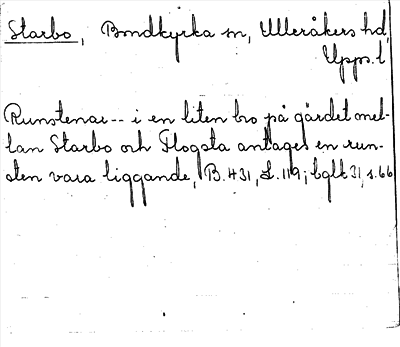 Starbo, Bondkyrka sn, Ulleråkers hd,
Upps. l
Runstenar -- i en liten bro på gärdet mel-
lan Starbo och Flogsta antages en run-
sten vara liggande, B. 431, L. 119; bglt 31, s. 66